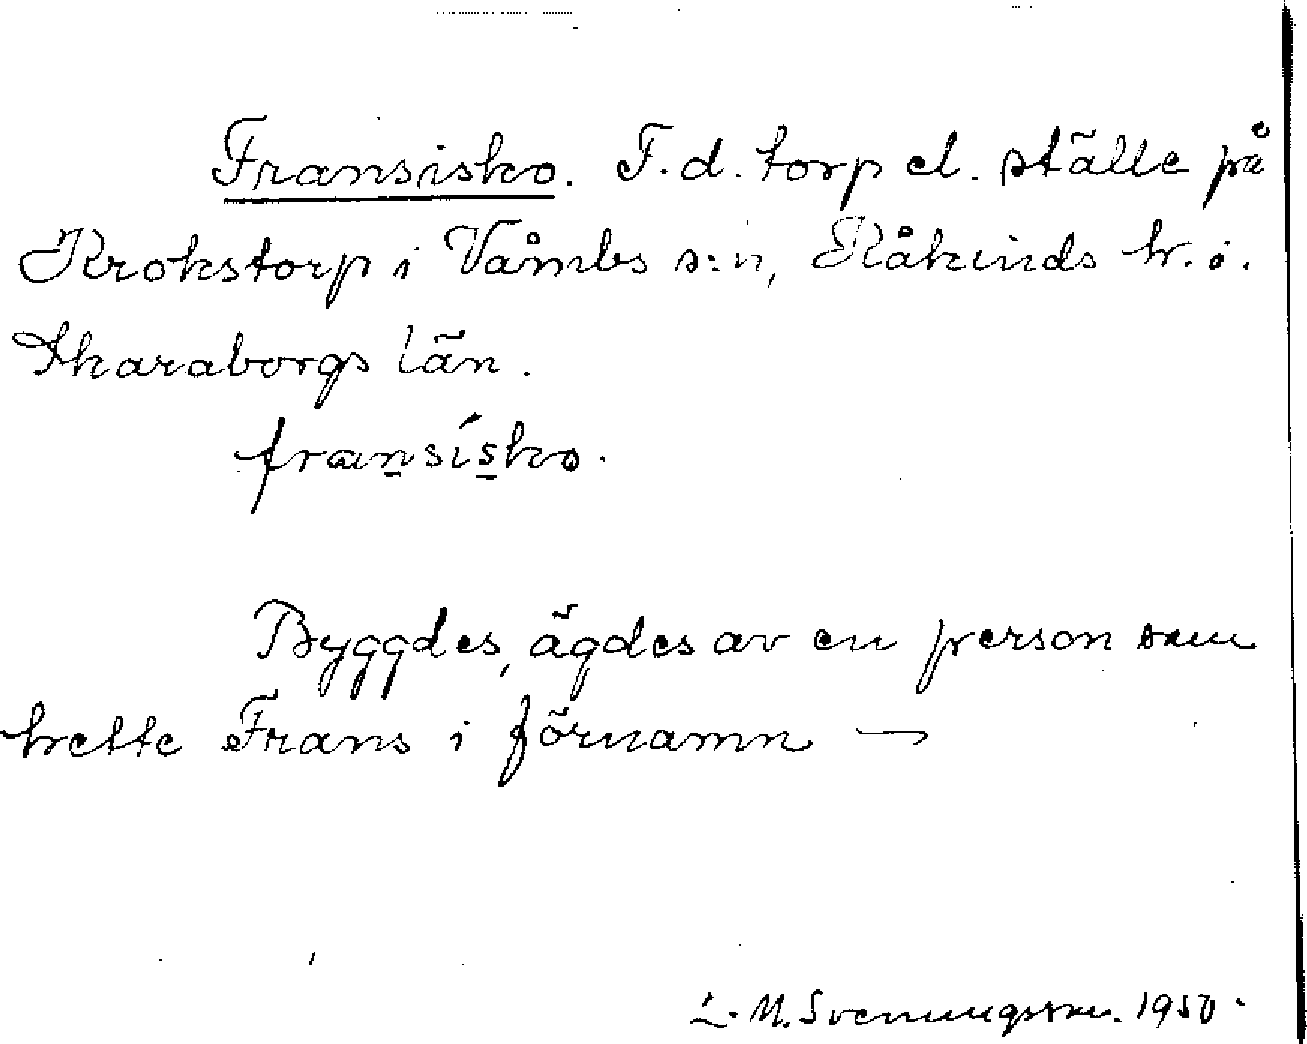 Fransisko. F.d. torp el. ställe på
Krokstorp i Våmbs s:n, Kåkinds h. i.
Skaraborgs län.
fransísko.
Byggdes, ägdes av en person som
hette Frans i förnamn —
L. M. Svenungsson. 1950.